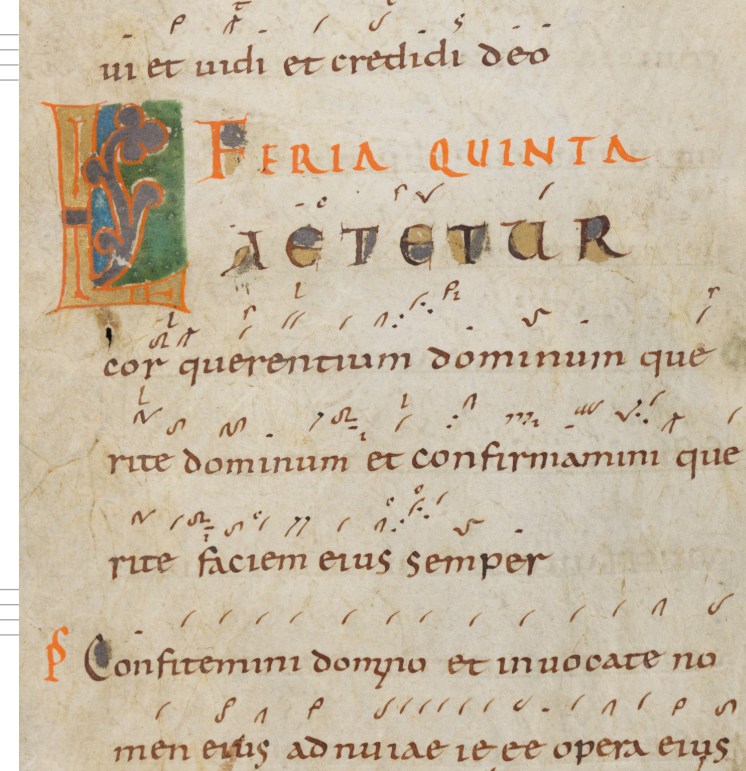 ui et uidi et credidi deo
FERIA QUINTA
LAETETUR
cor querentium dominum que
rite dominum et confirmamini que
rite faciem eius semper
Ps Confitemini domno et inuocate no
men eius adnu iae
opera eius